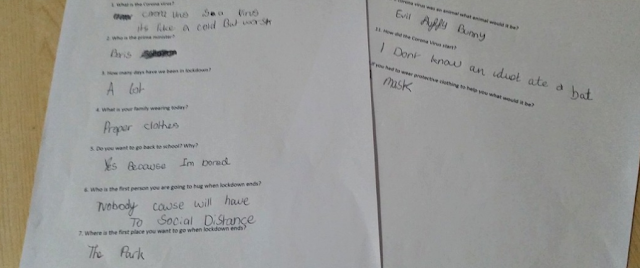 1. What is the Corona Virus?
Corona virus is a virus
its like a cold But worsh
2. Who is the prime minister?
Boris
3. How many days have we been in lockdown?
A lot
4. What is your family wearing today?
Proper clothes
5. Do you want to go back to school? Why?
Yes Because Im bored
6. Who is the first person you are going to hug when lockdown ends?
Nobody cause will have
To Social Distance
7. Where is the first place you want to go when lockdown ends?
The Park
corona virus was an animal what animal would it be?
Evil Bunny
11. How did the Corona Virus start?
I Dont know an idiot ate a bat
if you had to wear protective clothing to help you what would it be?
mask